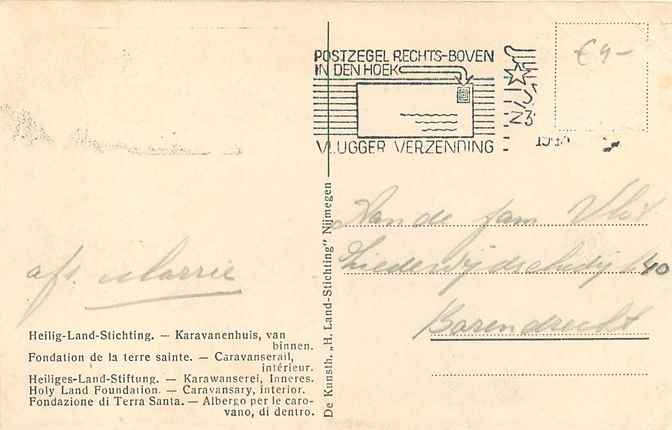 POSTZEGEL RECHTS-BOVEN
IN DEN HOEK
VLUGGER VERZENDING
€4-
Aan de fam Vlot
40
Barendrecht
afs. Marrie
Heilig-Land-Stichting. — Karavanenhuis, van
binnen.
Fondation de la terre sainte. — Caravanserail,
intérieur.
Heiliges-Land-Stiftung. — Karawanserei, Inneres.
Holy Land Foundation. — Caravansary, interior.
Fondazione di Terra Santa. — Albergo per le caro-
vano, di dentro.
De Kunsth. „H. Land-Stichting" Nijmegen